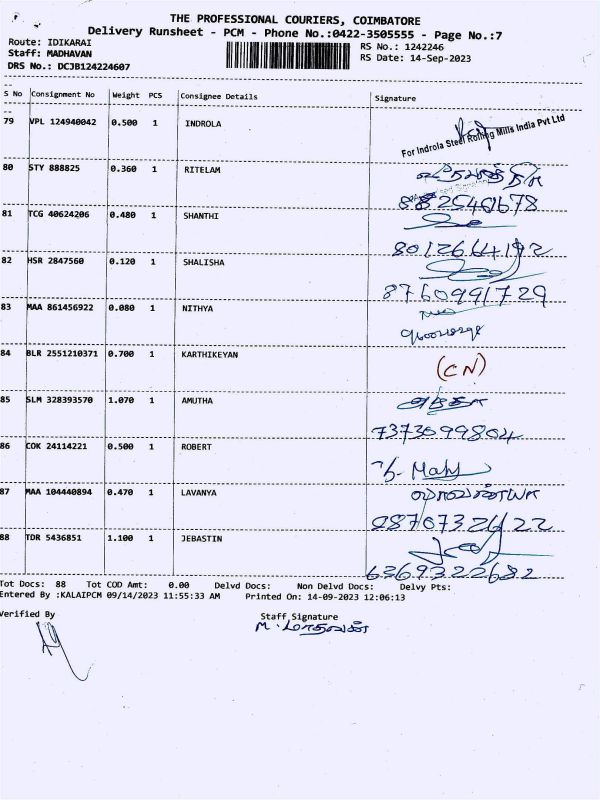 THE PROFESSIONAL COURIERS, COIMBATORE
Delivery Runsheet - PCM - Phone No.:0422-3505555 - Page No.:7
Route: IDIKARAI RS No.: 1242246
Staff: MADHAVAN RS Date: 14-Sep-2023
DRS No.: DCJB124224607
S No Consignment No Weight PCS Consignee Details Signature
79 VPL 124940042 0.500 1 INDROLA
For Indrola Steel Rolling Mills India Pvt Ltd
80 STY 888825 0.360 1 RITELAM
81 TCG 40624206 0.480 1 SHANTHI
8012664192
82 HSR 2847560 0.120 1 SHALISHA
8760991729
83 MAA 861456922 0.080 1 NITHYA
84 BLR 2551210371 0.700 1 KARTHIKEYAN (CN)
85 SLM 328393570 1.070 1 AMUTHA
7373099804
86 COK 24114221 0.500 1 ROBERT
87 MAA 104440894 0.470 1 LAVANYA
88 TDR 5436851 1.100 1 JEBASTIN
6369322682
Tot Docs: 88 Tot COD Amt: 0.00 Delvd Docs: Non Delvd Docs: Delvy Pts:
Entered By :KALAIPCM 09/14/2023 11:55:33 AM Printed On: 14-09-2023 12:06:13
Verified By Staff Signature
M. மாதவன்